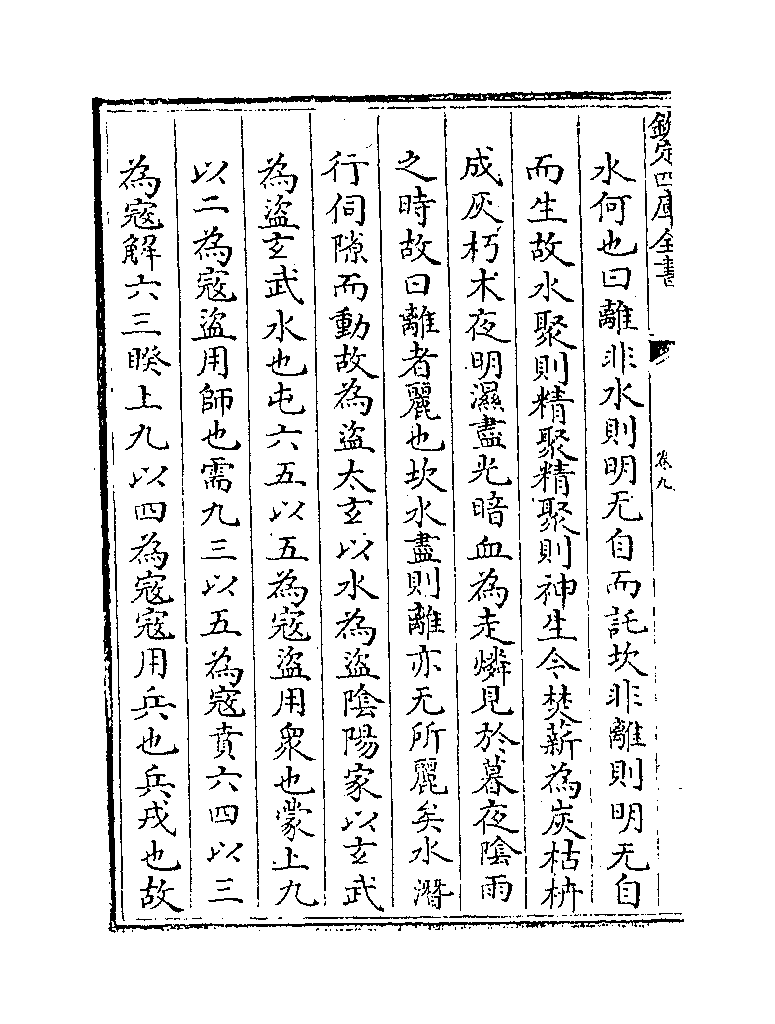 欽定四庫全書
卷九
水何也曰離非水則明无自而託坎非離則明无自
而生故水聚則精聚精聚則神生今焚薪為炭枯枿
成灰朽木夜明濕盡光暗血為走燐見於暮夜陰雨
之時故曰離者麗也坎水盡則離亦无所麗矣水潛
行伺隙而動故為盜太玄以水為盜陰陽家以玄武
為盜玄武水也屯六五以五為寇盜用衆也蒙上九
以二為寇盜用師也需九三以五為寇賁六四以三
為寇解六三睽上九以四為寇寇用兵也兵戎也故